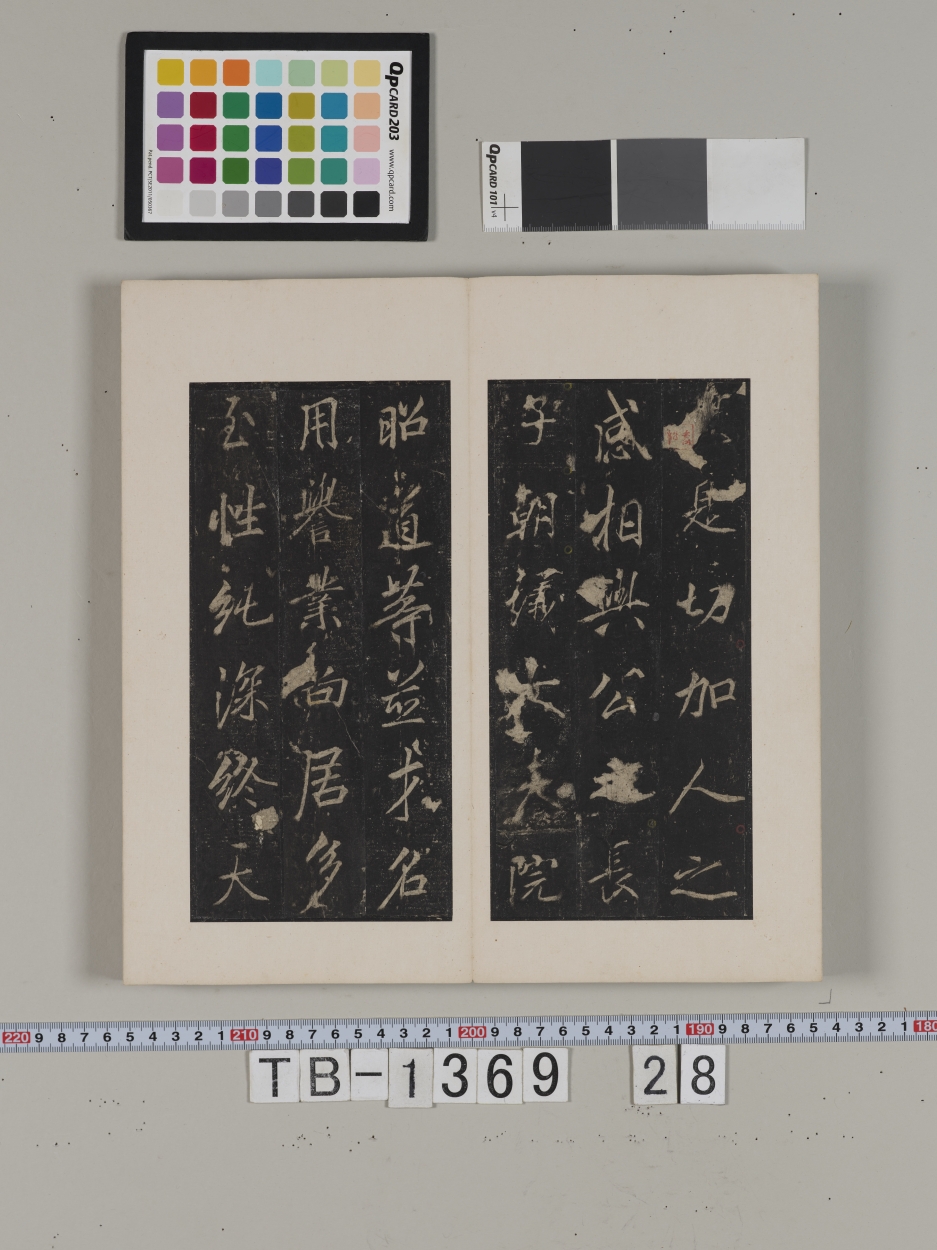 QPCARD 203 www.qpcard.com
QPCARD 101 v4
是切加人之
感相與公長
子朝議夫院
昭道等並才名
用譽業尚居多
至性純深終天
220 9 8 7 6 5 4 3 2 1 210 9 8 7 6 5 4 3 2 1 200 9 8 7 6 5 4 3 2 1 190 9 8 7 6 5 4 3 2 1 180
TB-1369 28